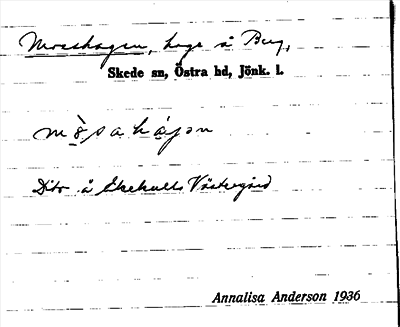 Moashagen, hage å Berg,
Skede sn, Östra hd, Jönk. l.
Dito å Ekehults Västregård
Annalisa Anderson 1936